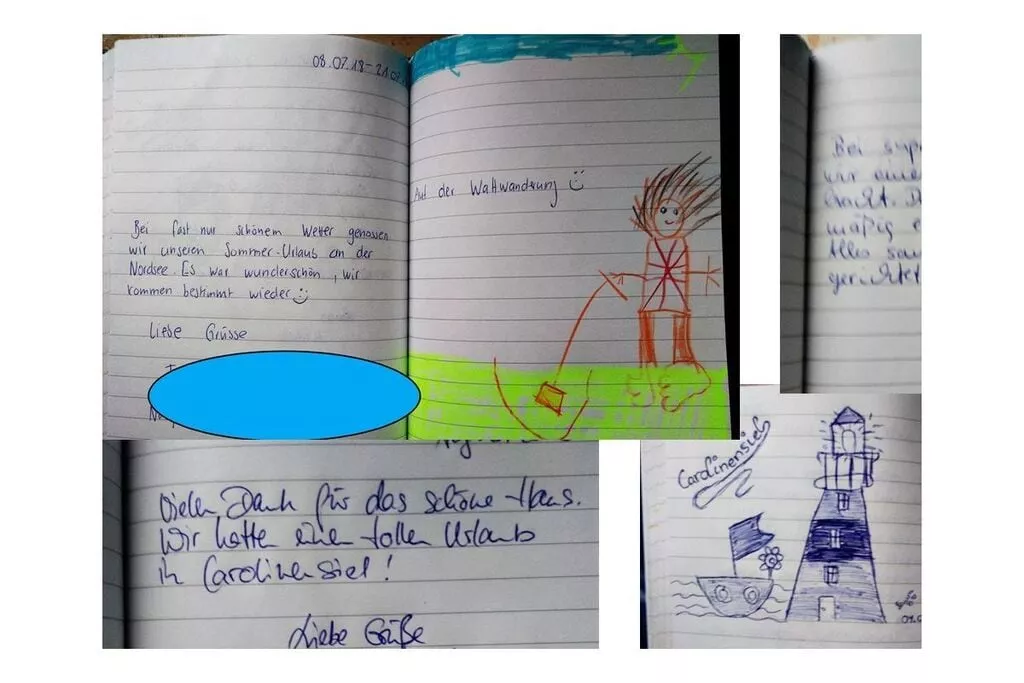 08.07.18-21.07.
Bei fast nur schönem Wetter genossen
wir unseren Sommer-Urlaub an der
Nordsee. Es war wunderschön, wir
kommen bestimmt wieder
Liebe Grüsse
Auf der Wattwanderung
Bei
wir eine
Alles
Vielen Dank für das schöne Haus.
Wir hatten einen tollen Urlaub
in Carolinensiel!
Liebe Grüße
Carolinensiel